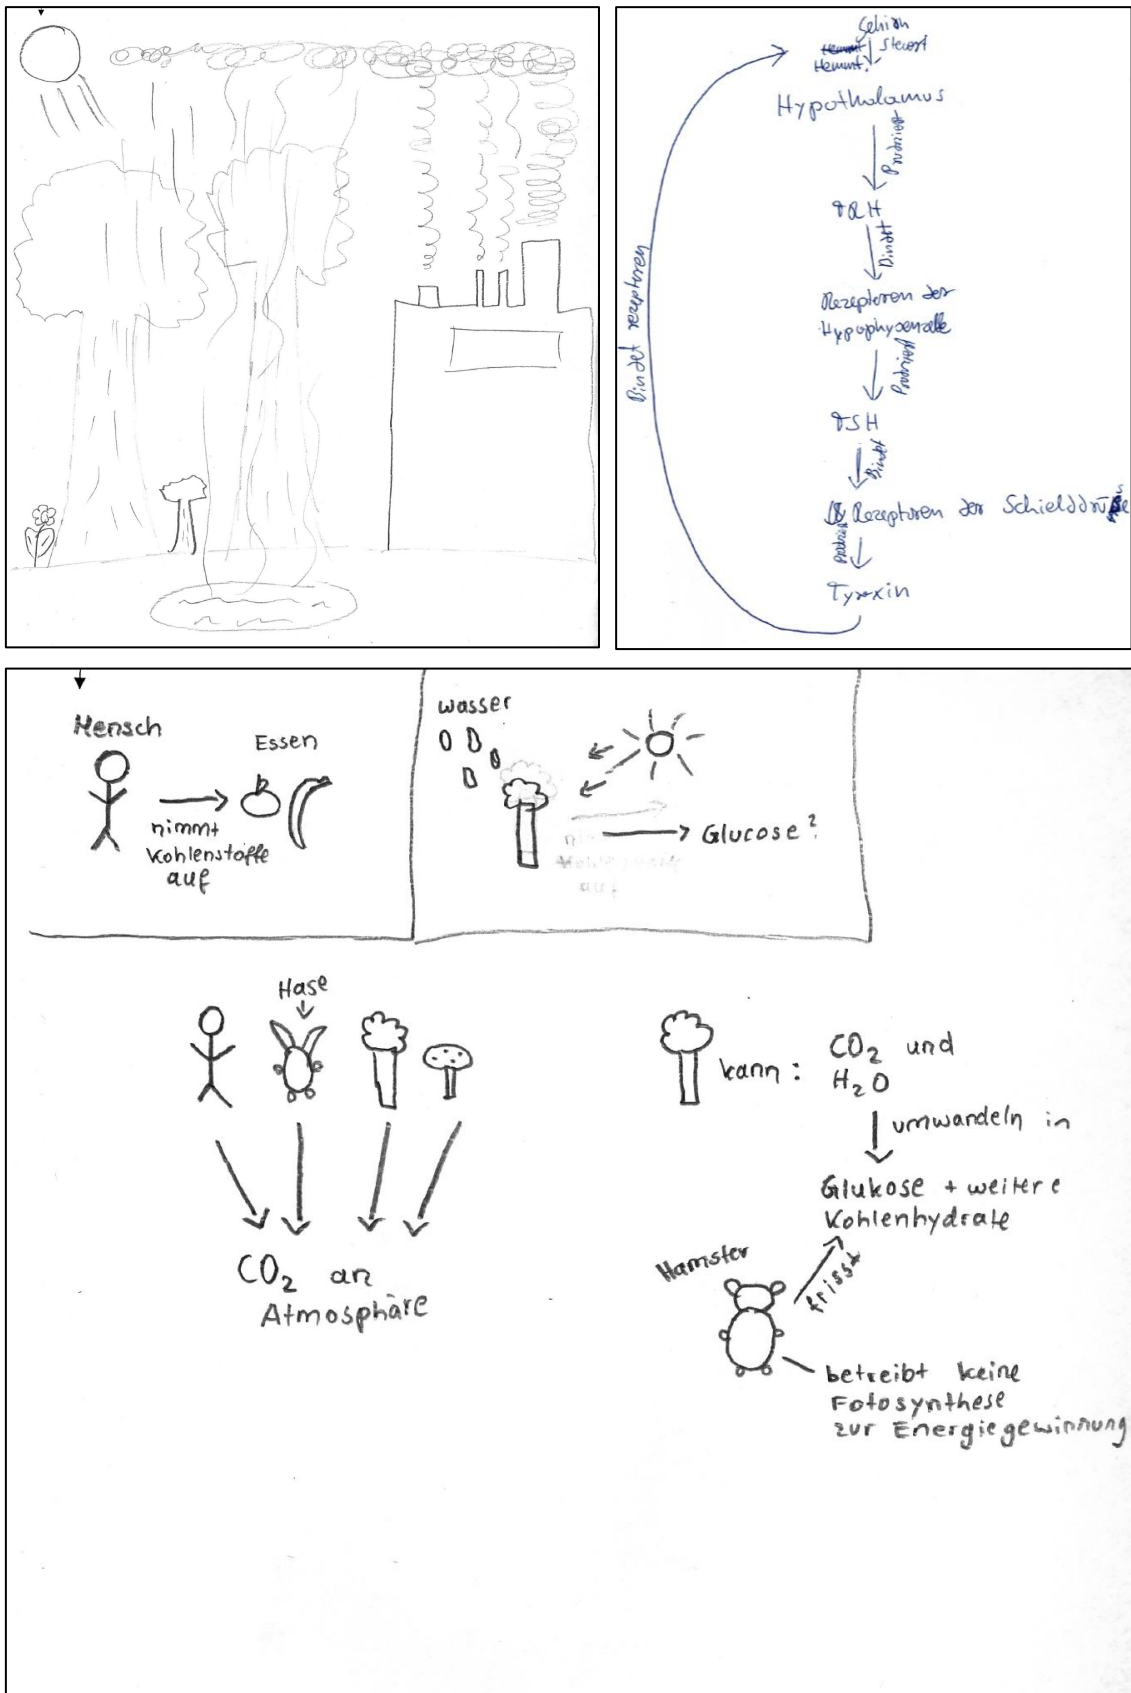 Gehirn
steuert
Hemmt
Hemmt
Hypothalamus
Produziert
TRH
Bindet
Rezeptoren der
Hypophysenzelle
Produziert
TSH
Bindet
Rezeptoren der Schielddrüse
Produziert
Tyroxin
Bindet rezeptoren
Mensch
Essen
nimmt
Kohlenstoffe
auf
wasser
Glucose?
Hase
CO₂ an
Atmosphäre
kann: CO₂ und
H₂O
umwandeln in
Glukose + weitere
Kohlenhydrate
Hamster
frisst
betreibt keine
Fotosynthese
zur Energiegewinnung